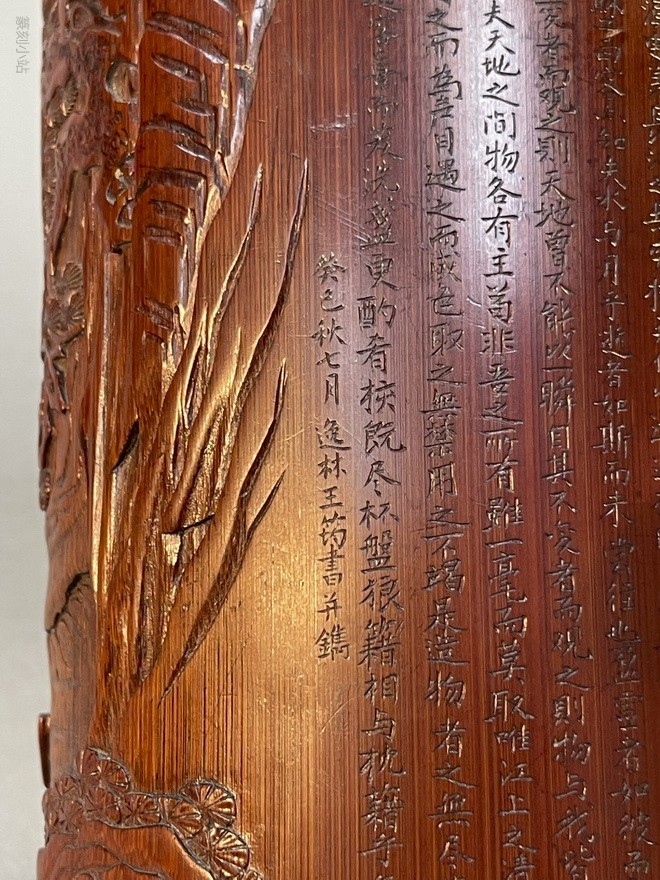 知夫水与月乎逝者如斯而未尝往也盈虚者如彼而
变者而观之则天地曾不能以一瞬自其不变者而观之则物与我皆
夫天地之间物各有主苟非吾之所有雖一毫而莫取唯江上之清
之而為声目遇之而成色取之無禁用之不竭是造物者之無尽
喜而笑洗盏更酌肴核既尽杯盤狼籍相与枕藉乎
癸巳秋七月 逸林王筠書并鐫
篆刻小站